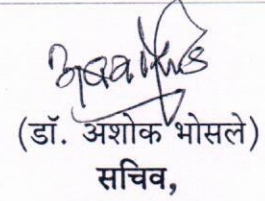 (डॉ. अशोक भोसले)
सचिव,